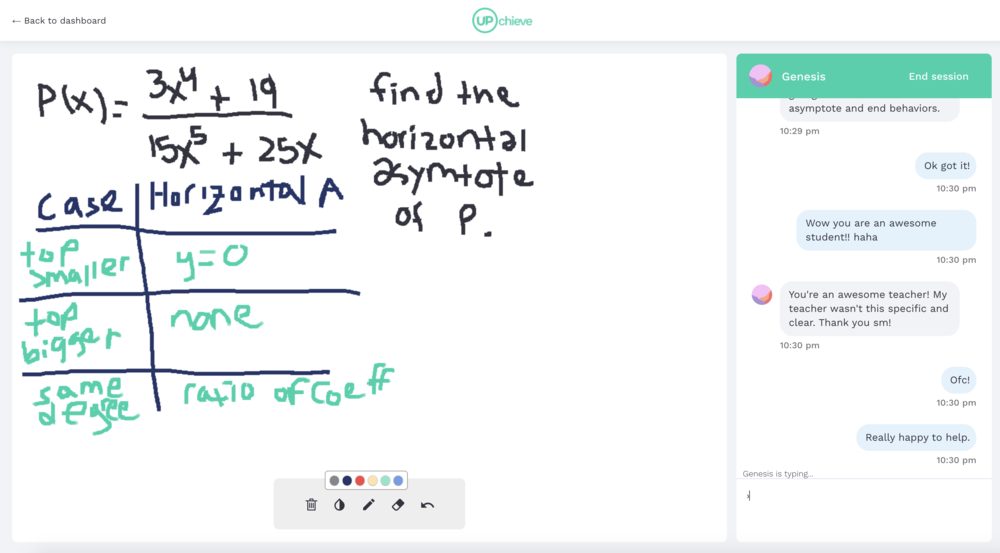 ← Back to dashboard
UPchieve
P(x) = 3x⁴ + 19
15x⁵ + 25x
find the
horizontal
asymtote
of P.
Case Horizontal A
top
smaller
y=0
top
bigger
none
same
degree
ratio of Coeff
Genesis
End session
asymptote and end behaviors.
10:29 pm
Ok got it!
10:30 pm
Wow you are an awesome
student!! haha
10:30 pm
You're an awesome teacher! My
teacher wasn't this specific and
clear. Thank you sm!
10:30 pm
Ofc!
10:30 pm
Really happy to help.
10:30 pm
Genesis is typing...